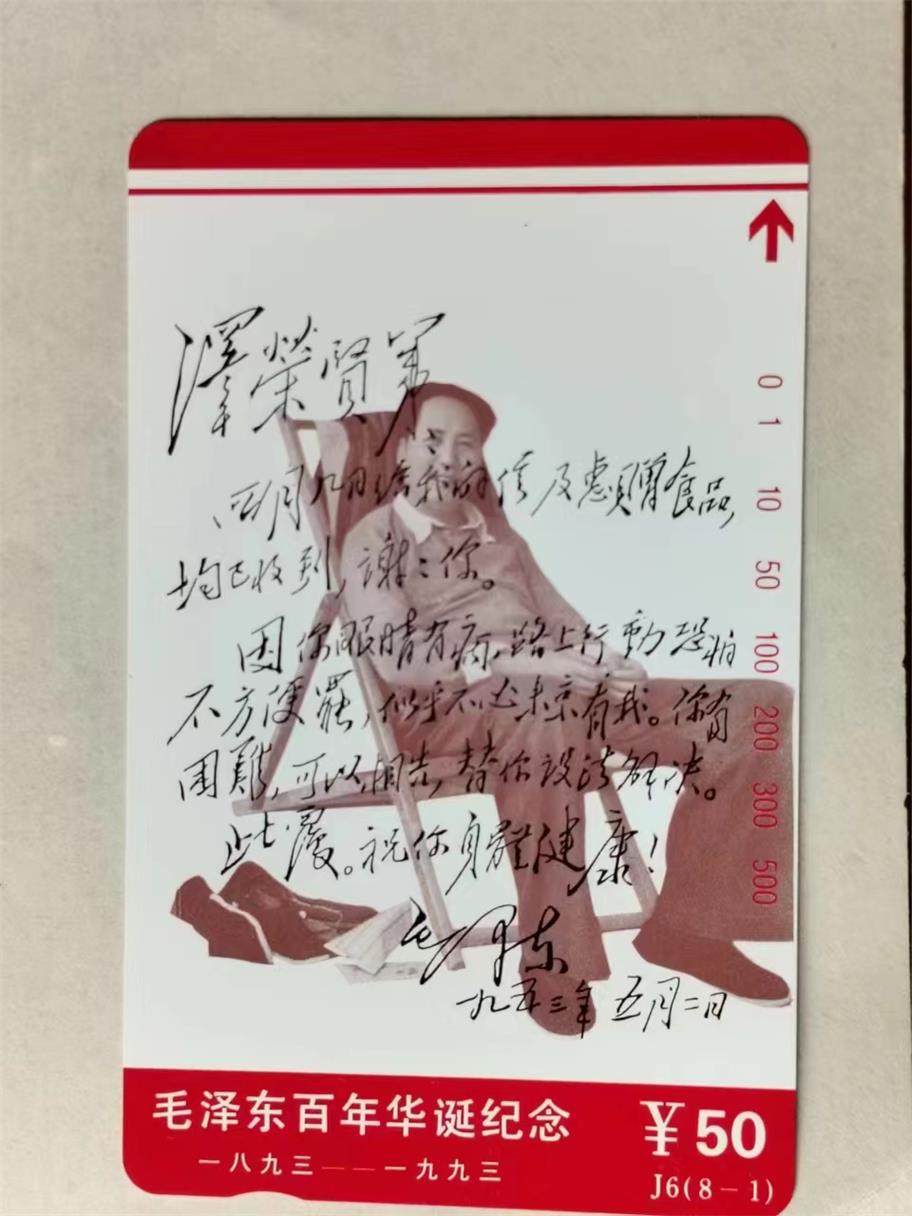 澤榮賢弟：
四月九日給我的信及惠贈食品，
均已收到，謝〻你。
因你眼睛有病，路上行動恐怕
不方便罷，似乎不必来京看我。你有
困難，可以相告，替你設法解决。
此覆。祝你身體健康！
毛澤东
一九五三年五月二日
0 1 10 50 100 200 300 500
毛泽东百年华诞纪念
一八九三——一九九三
¥50
J6(8-1)